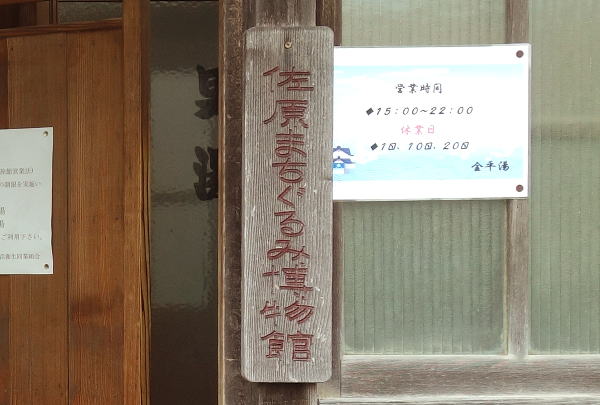 佐原まちぐるみ博物館
営業時間
◆15:00〜22:00
休業日
◆1日、10日、20日
金平湯
男湯
ご利用下さい。